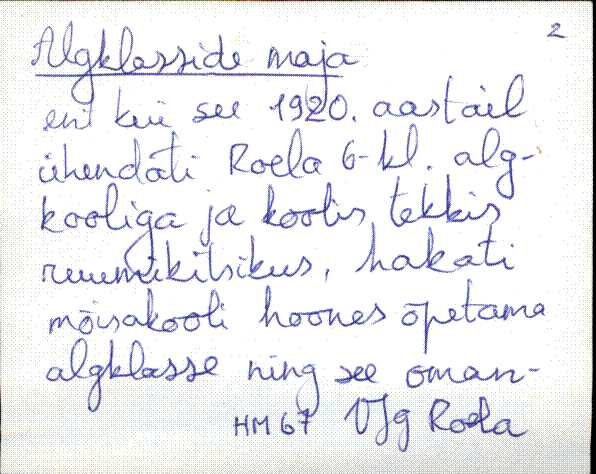 2
Algklasside maja
ent kui see 1920. aastail
ühendati Roela 6-kl. alg-
kooliga ja koolis tekkis
ruumikitsikus, hakati
mõisakooli hoones õpetama
algklasse ning see oman-
HM67 VJg Roela